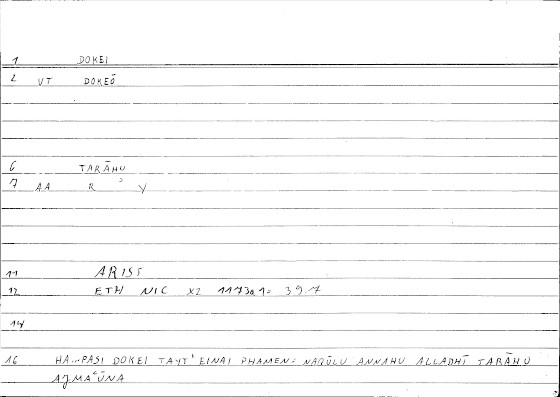 1 DOKEI
2 VT DOKEŌ
6 TARĀHU
7 AA R ʾ Y
11 ARIST
12 ETH NIC X2 1173a1= 39.7
14
16 HA...PASI DOKEI TAYT' EINAI PHAMEN= NAQŪLU ANNAHU ALLADHĪ TARĀHU
AJMAʿŪNA